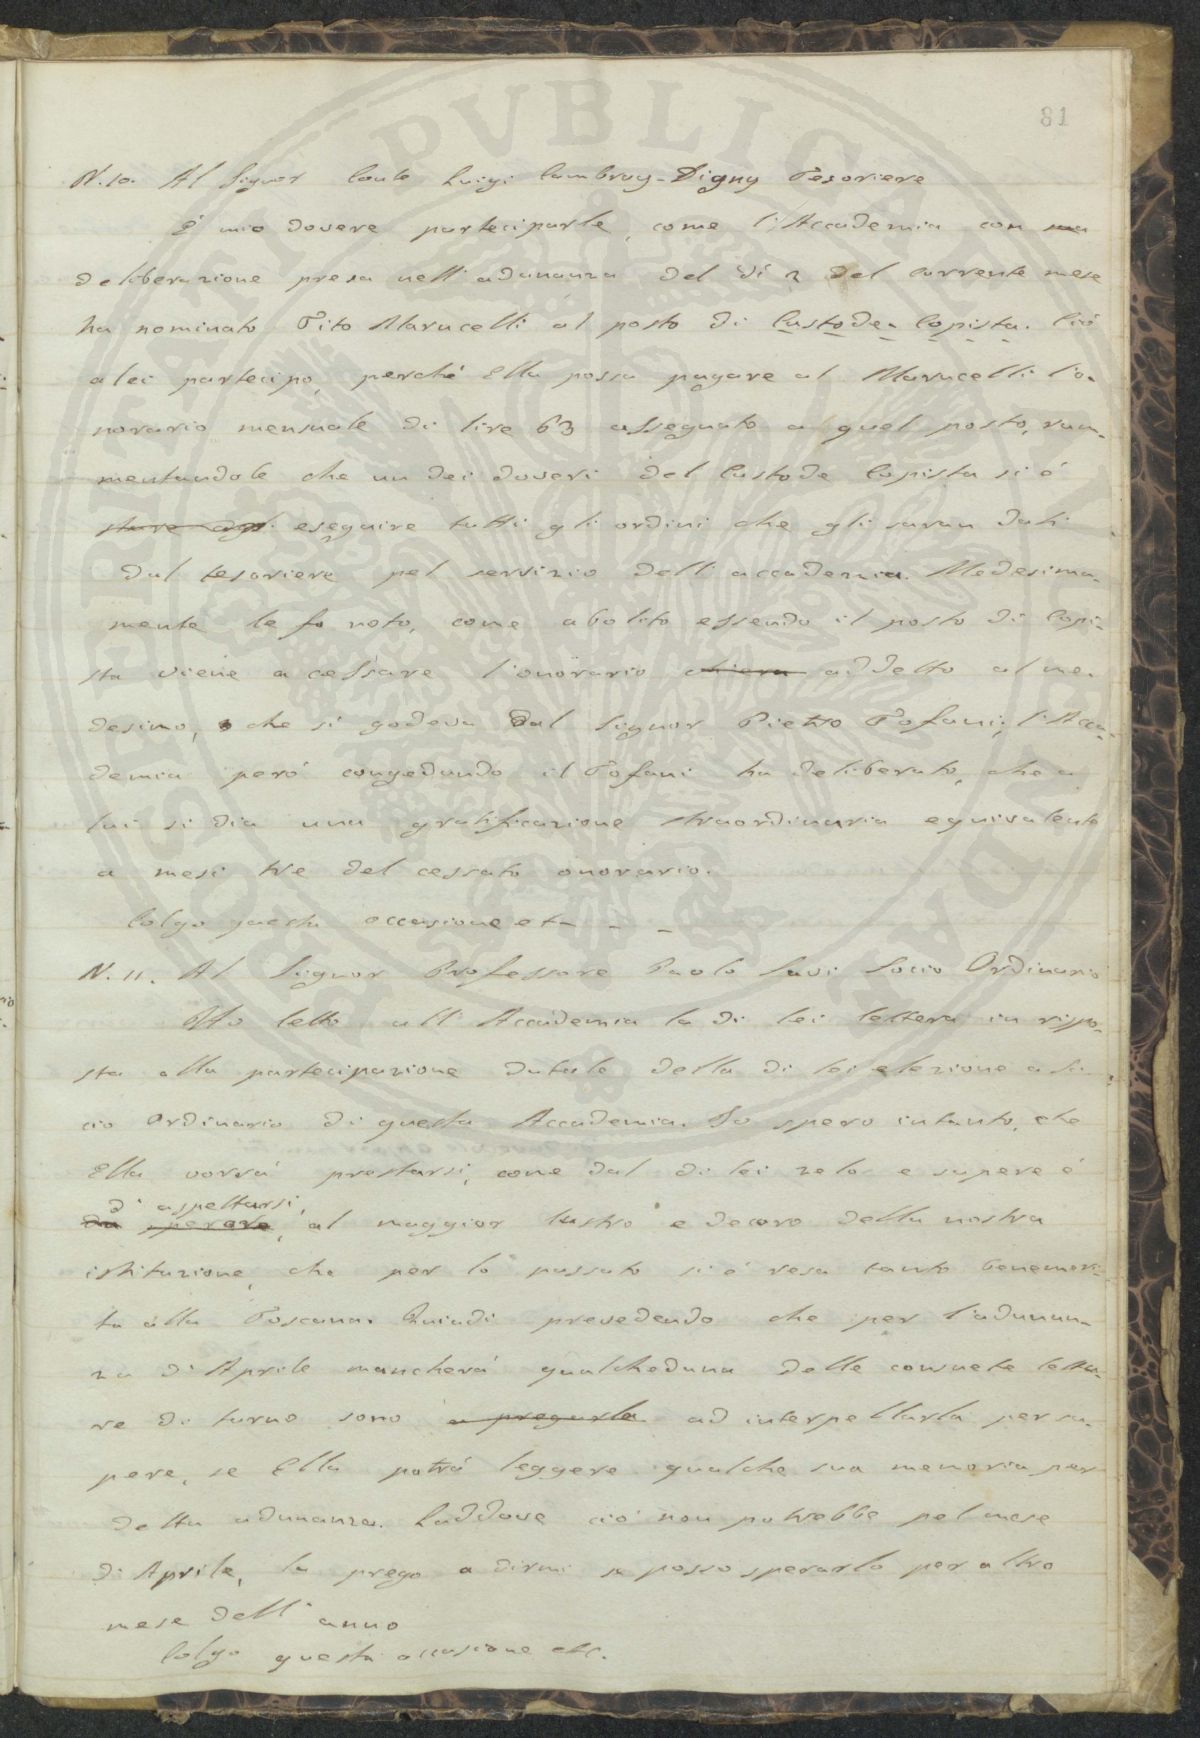 81
N. 10. Al Signor Conte Luigi Cambray-Digny Tesoriere
È mio dovere parteciparle, come l'Accademia con sua
deliberazione presa nell'adunanza del dì 2 del corrente mese
ha nominato Tito Marucelli al posto di Custode-Copista. Ciò
a lei partecipo, perché Ella possa pagare al Marucelli l'o-
norario mensuale di lire 63 assegnato a quel posto, ram-
mentandole che un dei doveri del Custode Copista si è
stare agli eseguire tutti gli ordini che gli saran dati
dal tesoriere pel servizio dell'accademia. Medesima-
mente le fo noto, come abolito essendo il posto di Copi-
sta viene a cessare l'onorario addetto al me-
desimo, che si godeva dal Signor Pietro Tofani; l'Acca-
demia però congedando il Tofani ha deliberato, che a
lui si dia una gratificazione straordinaria equivalente
a mesi tre del cessato onorario.
Colgo questa occasione et - - -
N. 11. Al Signor Professore Paolo Savi Socio Ordinario
Ho letto all'Accademia la di lei lettera in rispo-
sta alla partecipazione datale della di lei elezione a So-
cio Ordinario di questa Accademia. Io spero intanto, che
Ella vorrà prestarsi, come dal di lei zelo e sapere è
di aspettarsi,
da sperare, al maggior lustro e decoro della nostra
istituzione, che per lo passato si è resa tanto benemeri-
ta alla Toscana. Quindi prevedendo che per l'adunan-
za di Aprile mancherà qualcheduna delle consuete lettu-
re di turno sono a pregarla ad interpellarla per sa-
pere, se Ella potrà leggere qualche sua memoria per
detta adunanza. Laddove ciò non potrebbe pel mese
di Aprile, la prego a dirmi se posso sperarlo per altro
mese dell'anno
Colgo questa occasione etc.
PUBLICA